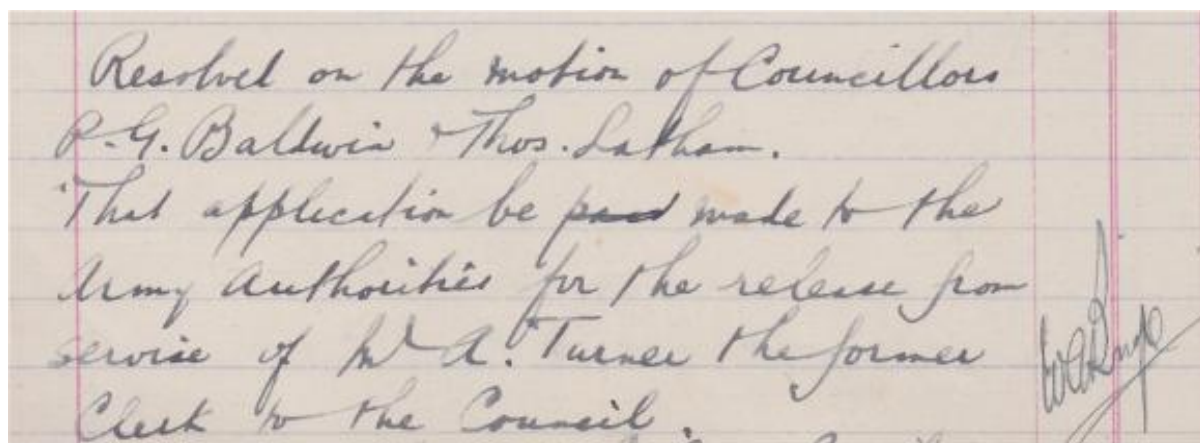 Resolved on the motion of Councillors
P. G. Baldwin & Thos. Latham.
That application be paid made to the
Army Authorities for the release from
service of Mr A. Turner the former
Clerk to the Council.